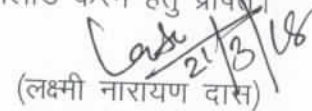 करने हेतु प्रेषित।
21/3/18
(लक्ष्मी नारायण दास)